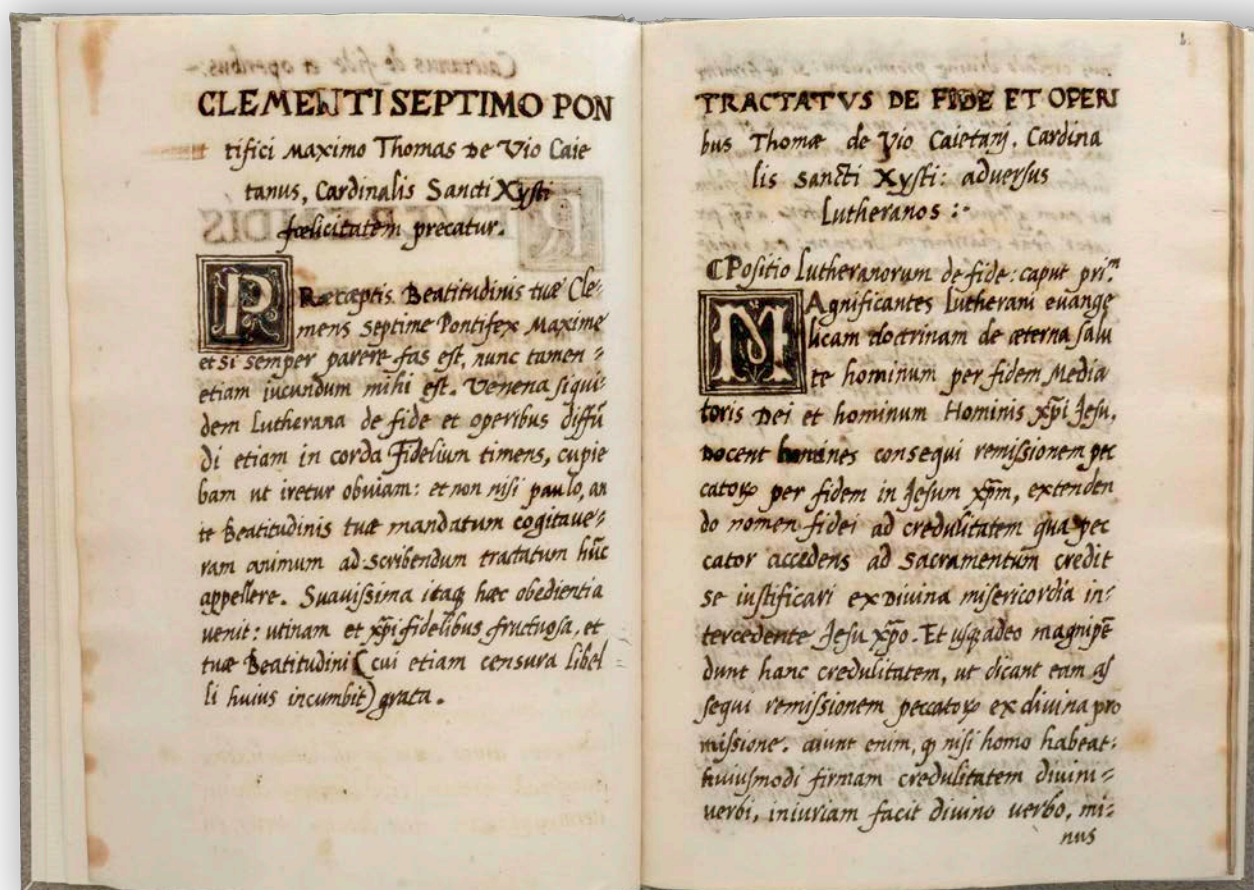 CLEMENTI SEPTIMO PON
tifici Maximo Thomas De Vio Caie
tanus, Cardinalis Sancti Xysti
fœlicitatem precatur.
PRæcæptis Beatitudinis tuæ Cle-
mens Septime Pontifex Maxime
et si semper parere fas est, nunc tamen =
etiam iucundum mihi est. Venena siqui-
dem Lutherana de fide et operibus diffũ
di etiam in corda Fidelium timens, cupie
bam ut iretur obviam: et non nisi paulo, an
te Beatitudinis tuæ mandatum cogitave-
ram animum ad scribendum tractatum hũc
appellere. Suavissima itaq hæc obedientia
venit: utinam et xp̃i fidelibus fructuosa, et
tuæ Beatitudini (cui etiam censura libel =
li huius incumbit) grata.
2.
TRACTATVS DE FIDE ET OPERI
bus Thomæ de Vio Caietanj. Cardina
lis Sancti Xysti: adversus
Lutheranos :-
Positio Lutheranorum de fide: caput priᵐ
MAgnificantes Lutherani evange
licam doctrinam de æterna salu
te hominum per fidem Media
toris Dei et hominum Hominis xp̃i Jesu,
Docent homines consequi remissionem pec
catoꝝ per fidem in Jesum xp̃m, extenden
do nomen fidei ad credulitatem qua pec
cator accedens ad Sacramentũm credit
se iustificari ex Divina misericordia in-
tercedente Jesu xp̃o. Et usq adeo magnipẽ
dunt hanc credulitatem, ut dicant eam as
sequi remissionem peccatoꝝ ex divina pro
missione. aiunt enim, ꝙ nisi homo habeat:
huiusmodi firmam credulitatem divini =
verbi, iniuriam facit divino verbo, mi-
nus